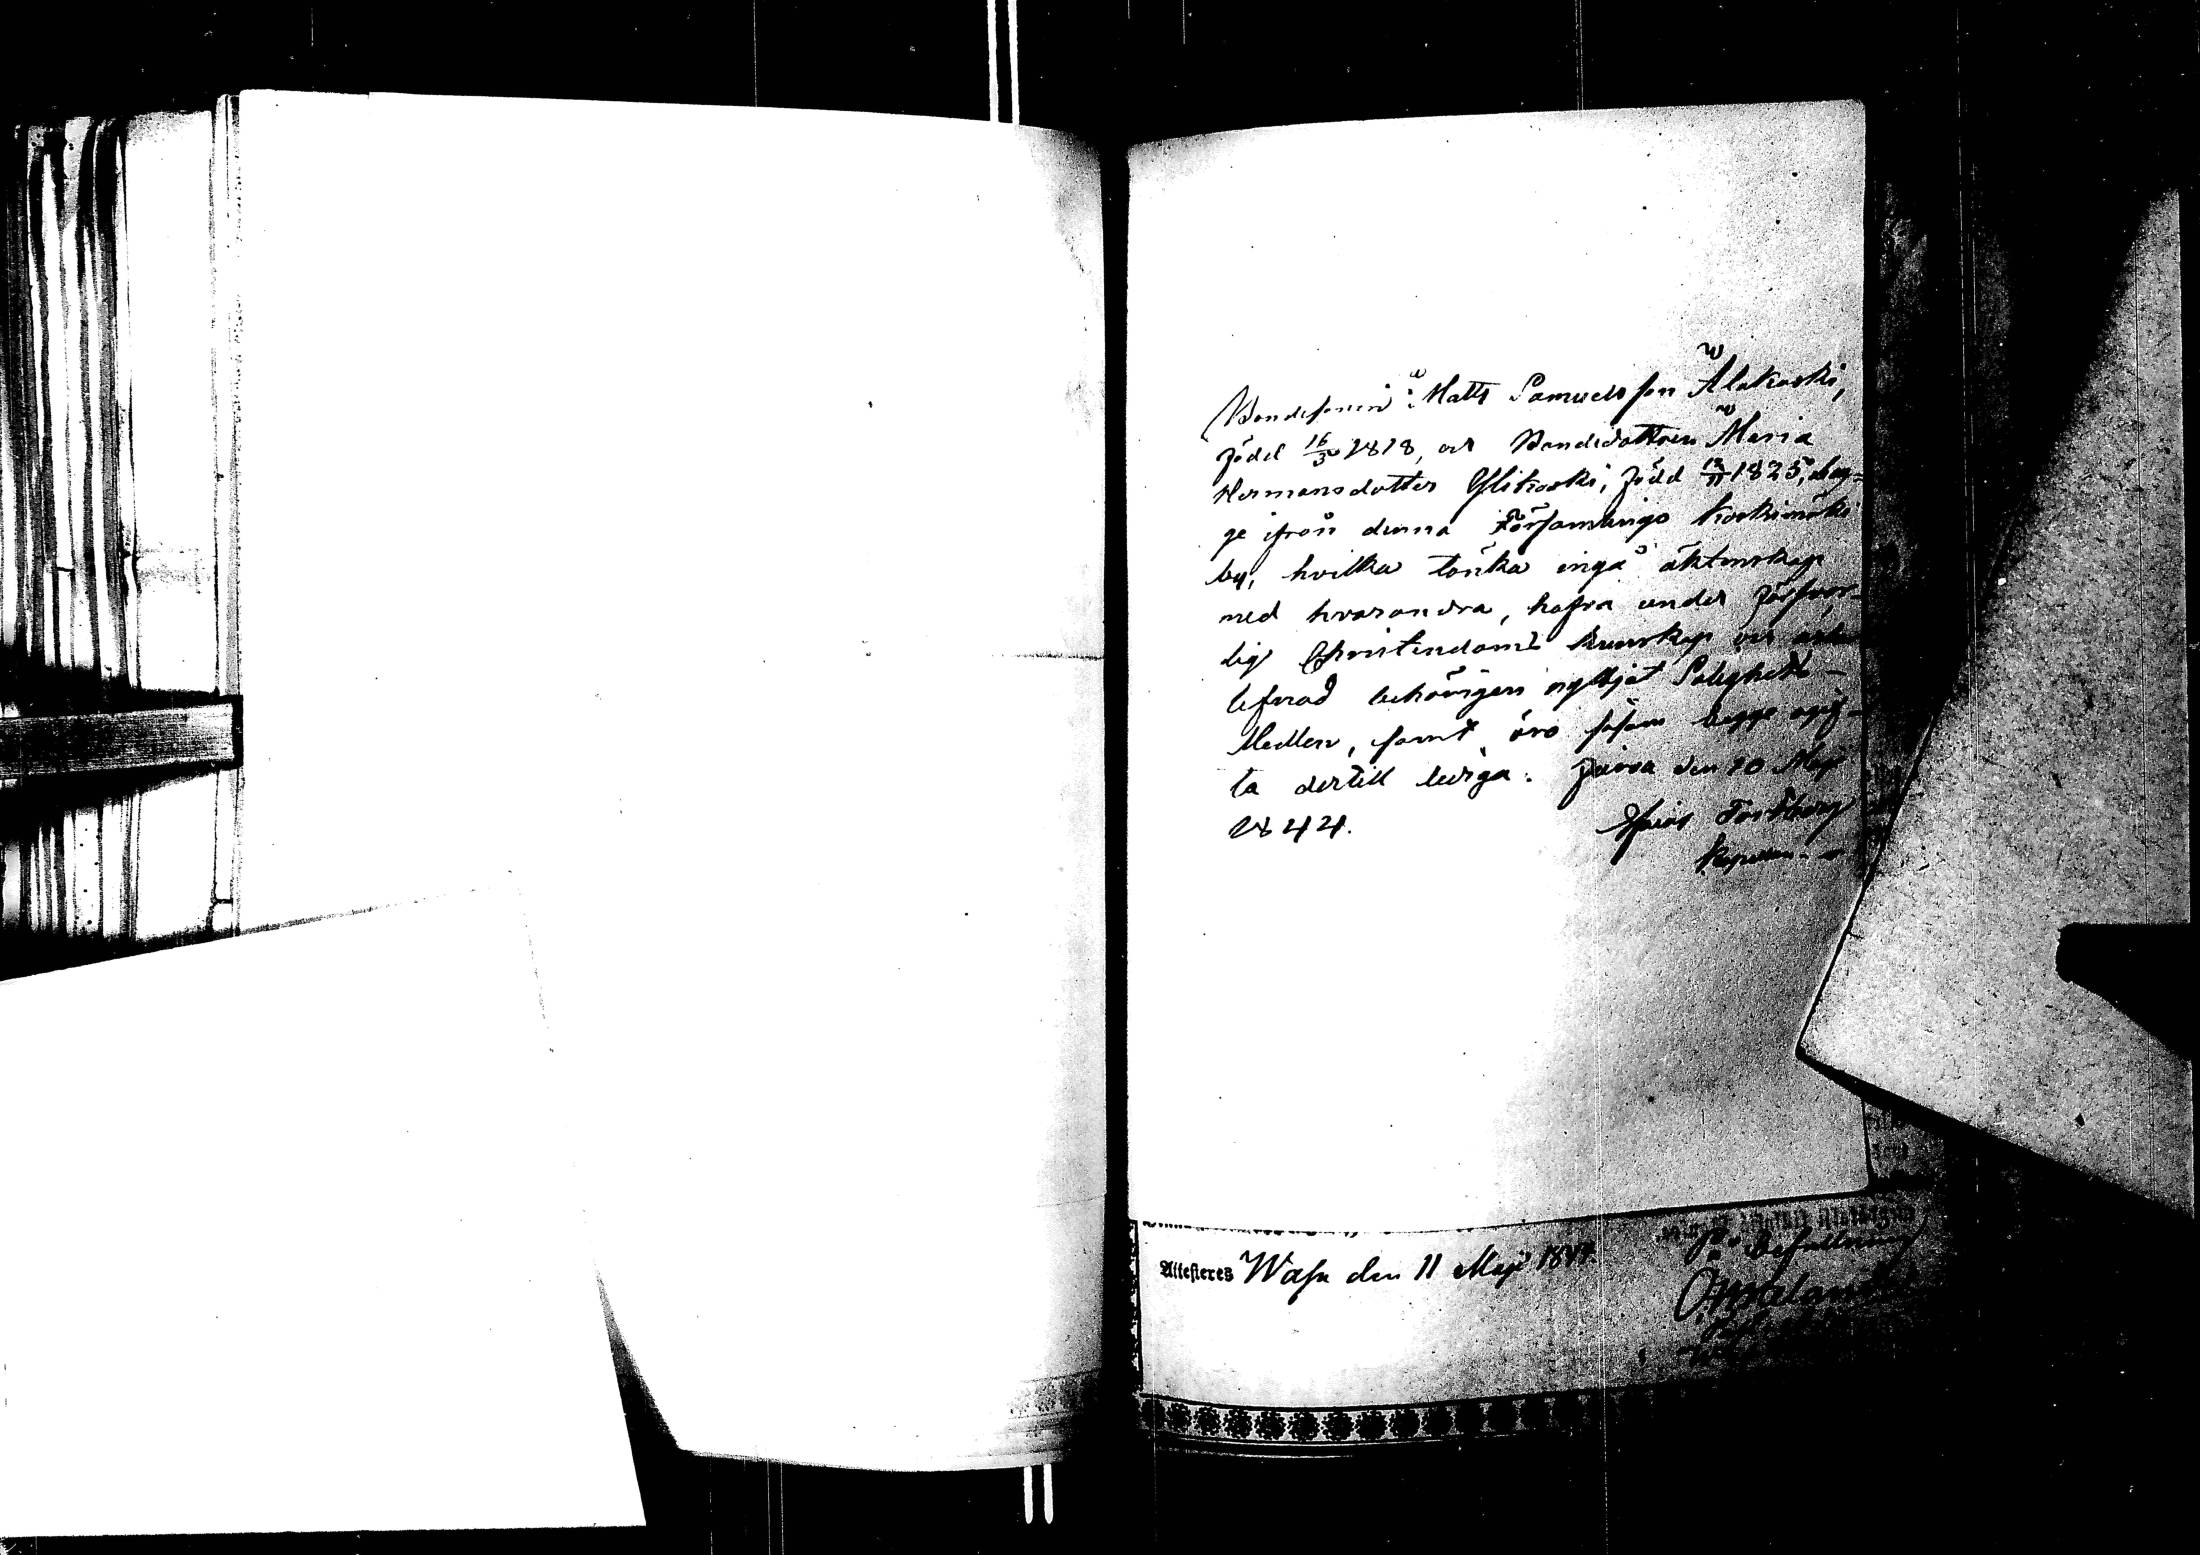 Bondesonen Matts Samuelsson Alakoski,
född 16/3 1818, och Bondedottren Maria
Hermansdotter Ylikoski, född 12/11 1825, beg-
ge ifrån denna Församlings Koskimäki
by, hvilka tänka ingå äktenskap
med hvarandra, hafva under försvar-
lig Christendoms kunskap och
lefnad behörigen nyttjat Salighets-
Medlen, samt äro såsom begge ogif-
ta dertill lediga. den 10 Maji
1844.
Attesteres Wasa den 11 Maji 1844.
Befallning